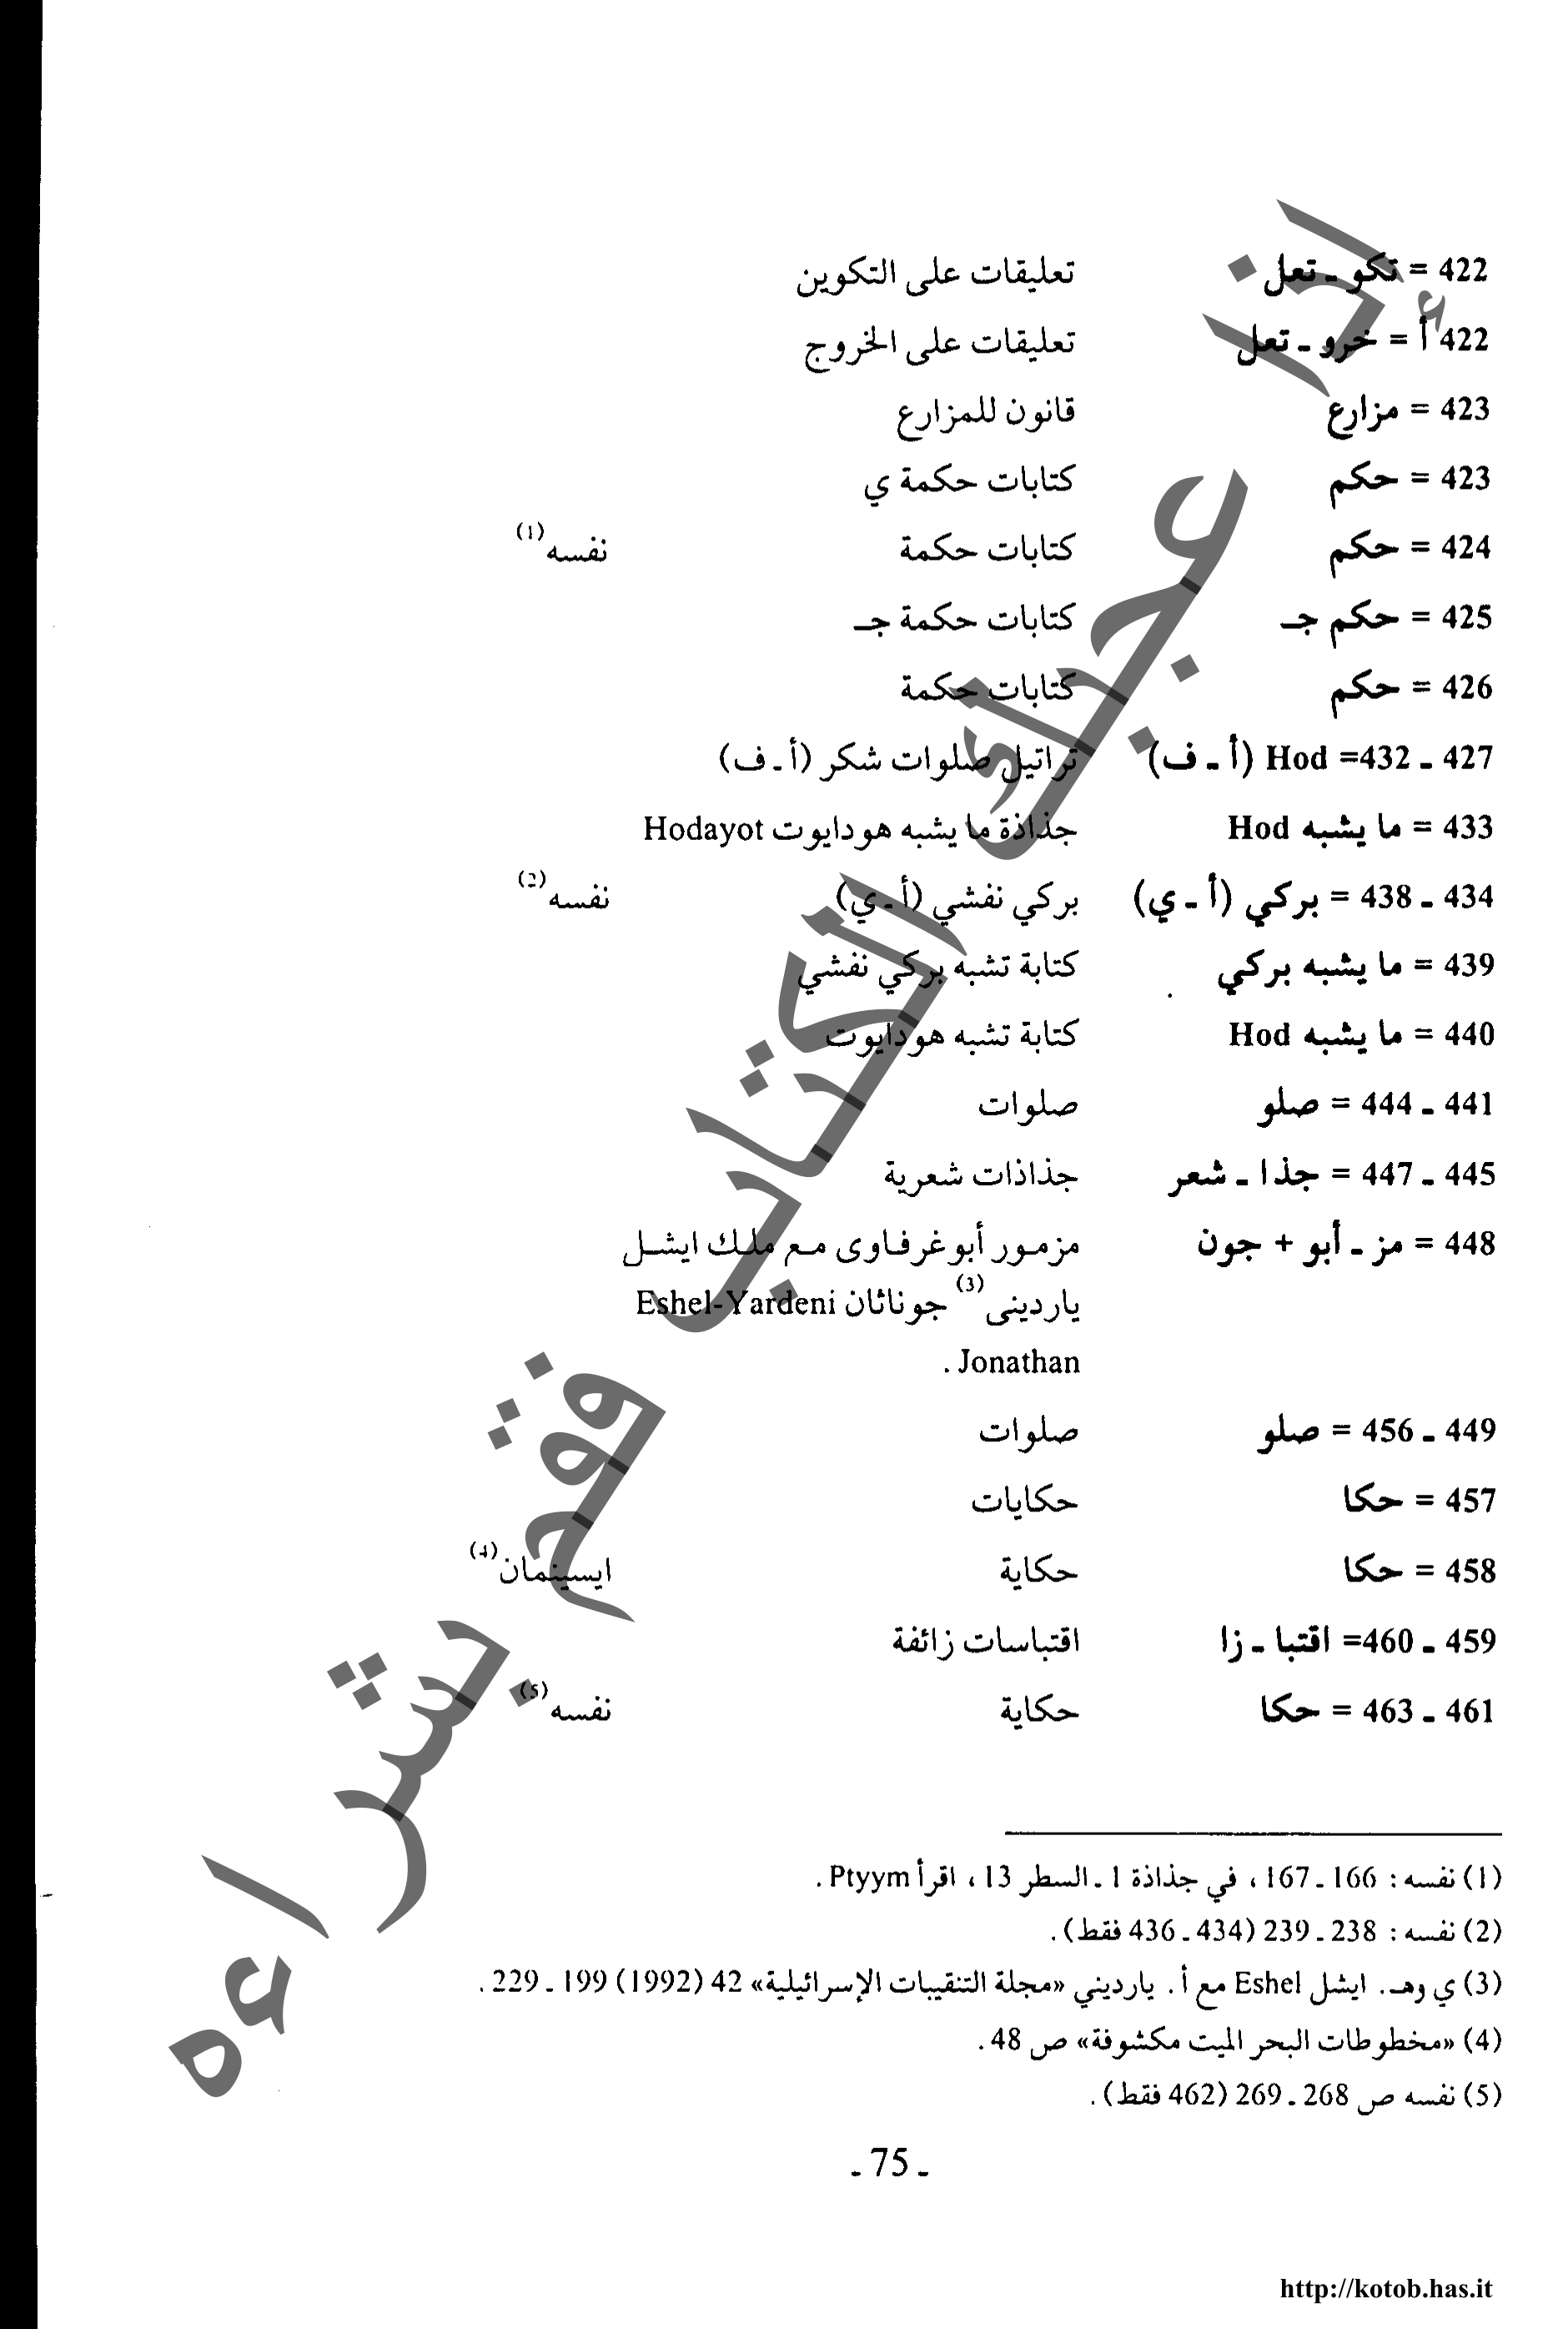 422 = تكو ـ تعل تعليقات على التكوين
422 أ = خرو ـ تعل تعليقات على الخروج
423 = مزارع قانون للمزارع
423 = حكم كتابات حكمة ي
424 = حكم كتابات حكمة نفسه(1)
425 = حكم جـ كتابات حكمة جـ
426 = حكم كتابات حكمة
427 ـ 432= Hod (أ ـ ف) تراتيل صلوات شكر (أ ـ ف)
433 = ما يشبه Hod جذاذة ما يشبه هودايوت Hodayot
434 ـ 438 = بركي (أ ـ ي) بركي نفشي (أ ـ ي) نفسه(2)
439 = ما يشبه بركي كتابة تشبه بركي نفشي
440 = ما يشبه Hod كتابة تشبه هودايوت
441 ـ 444 = صلو صلوات
445 ـ 447 = جذا ـ شعر جذاذات شعرية
448 = مز ـ أبو + جون مزمور أبوغرفاوى مع ملك ايشل
ياردينى(3) جوناثان Eshel-Yardeni
Jonathan .
449 ـ 456 = صلو صلوات
457 = حكا حكايات
458 = حكا حكاية ايسينمان(4)
459 ـ 460= اقتبا ـ زا اقتباسات زائفة
461 ـ 463 = حكا حكاية نفسه(5)
(1) نفسه : 166 ـ 167 ، في جذاذة 1 ـ السطر 13 ، اقرأ Ptyym .
(2) نفسه : 238 ـ 239 (434 ـ 436 فقط) .
(3) ي وهـ . ايشل Eshel مع أ . يارديني «مجلة التنقيبات الإسرائيلية» 42 (1992) 199 ـ 229 .
(4) «مخطوطات البحر الميت مكشوفة» ص 48 .
(5) نفسه ص 268 ـ 269 (462 فقط) .
ـ 75 ـ
http://kotob.has.it
إذا أعجبك الكتاب فقم بشراءه